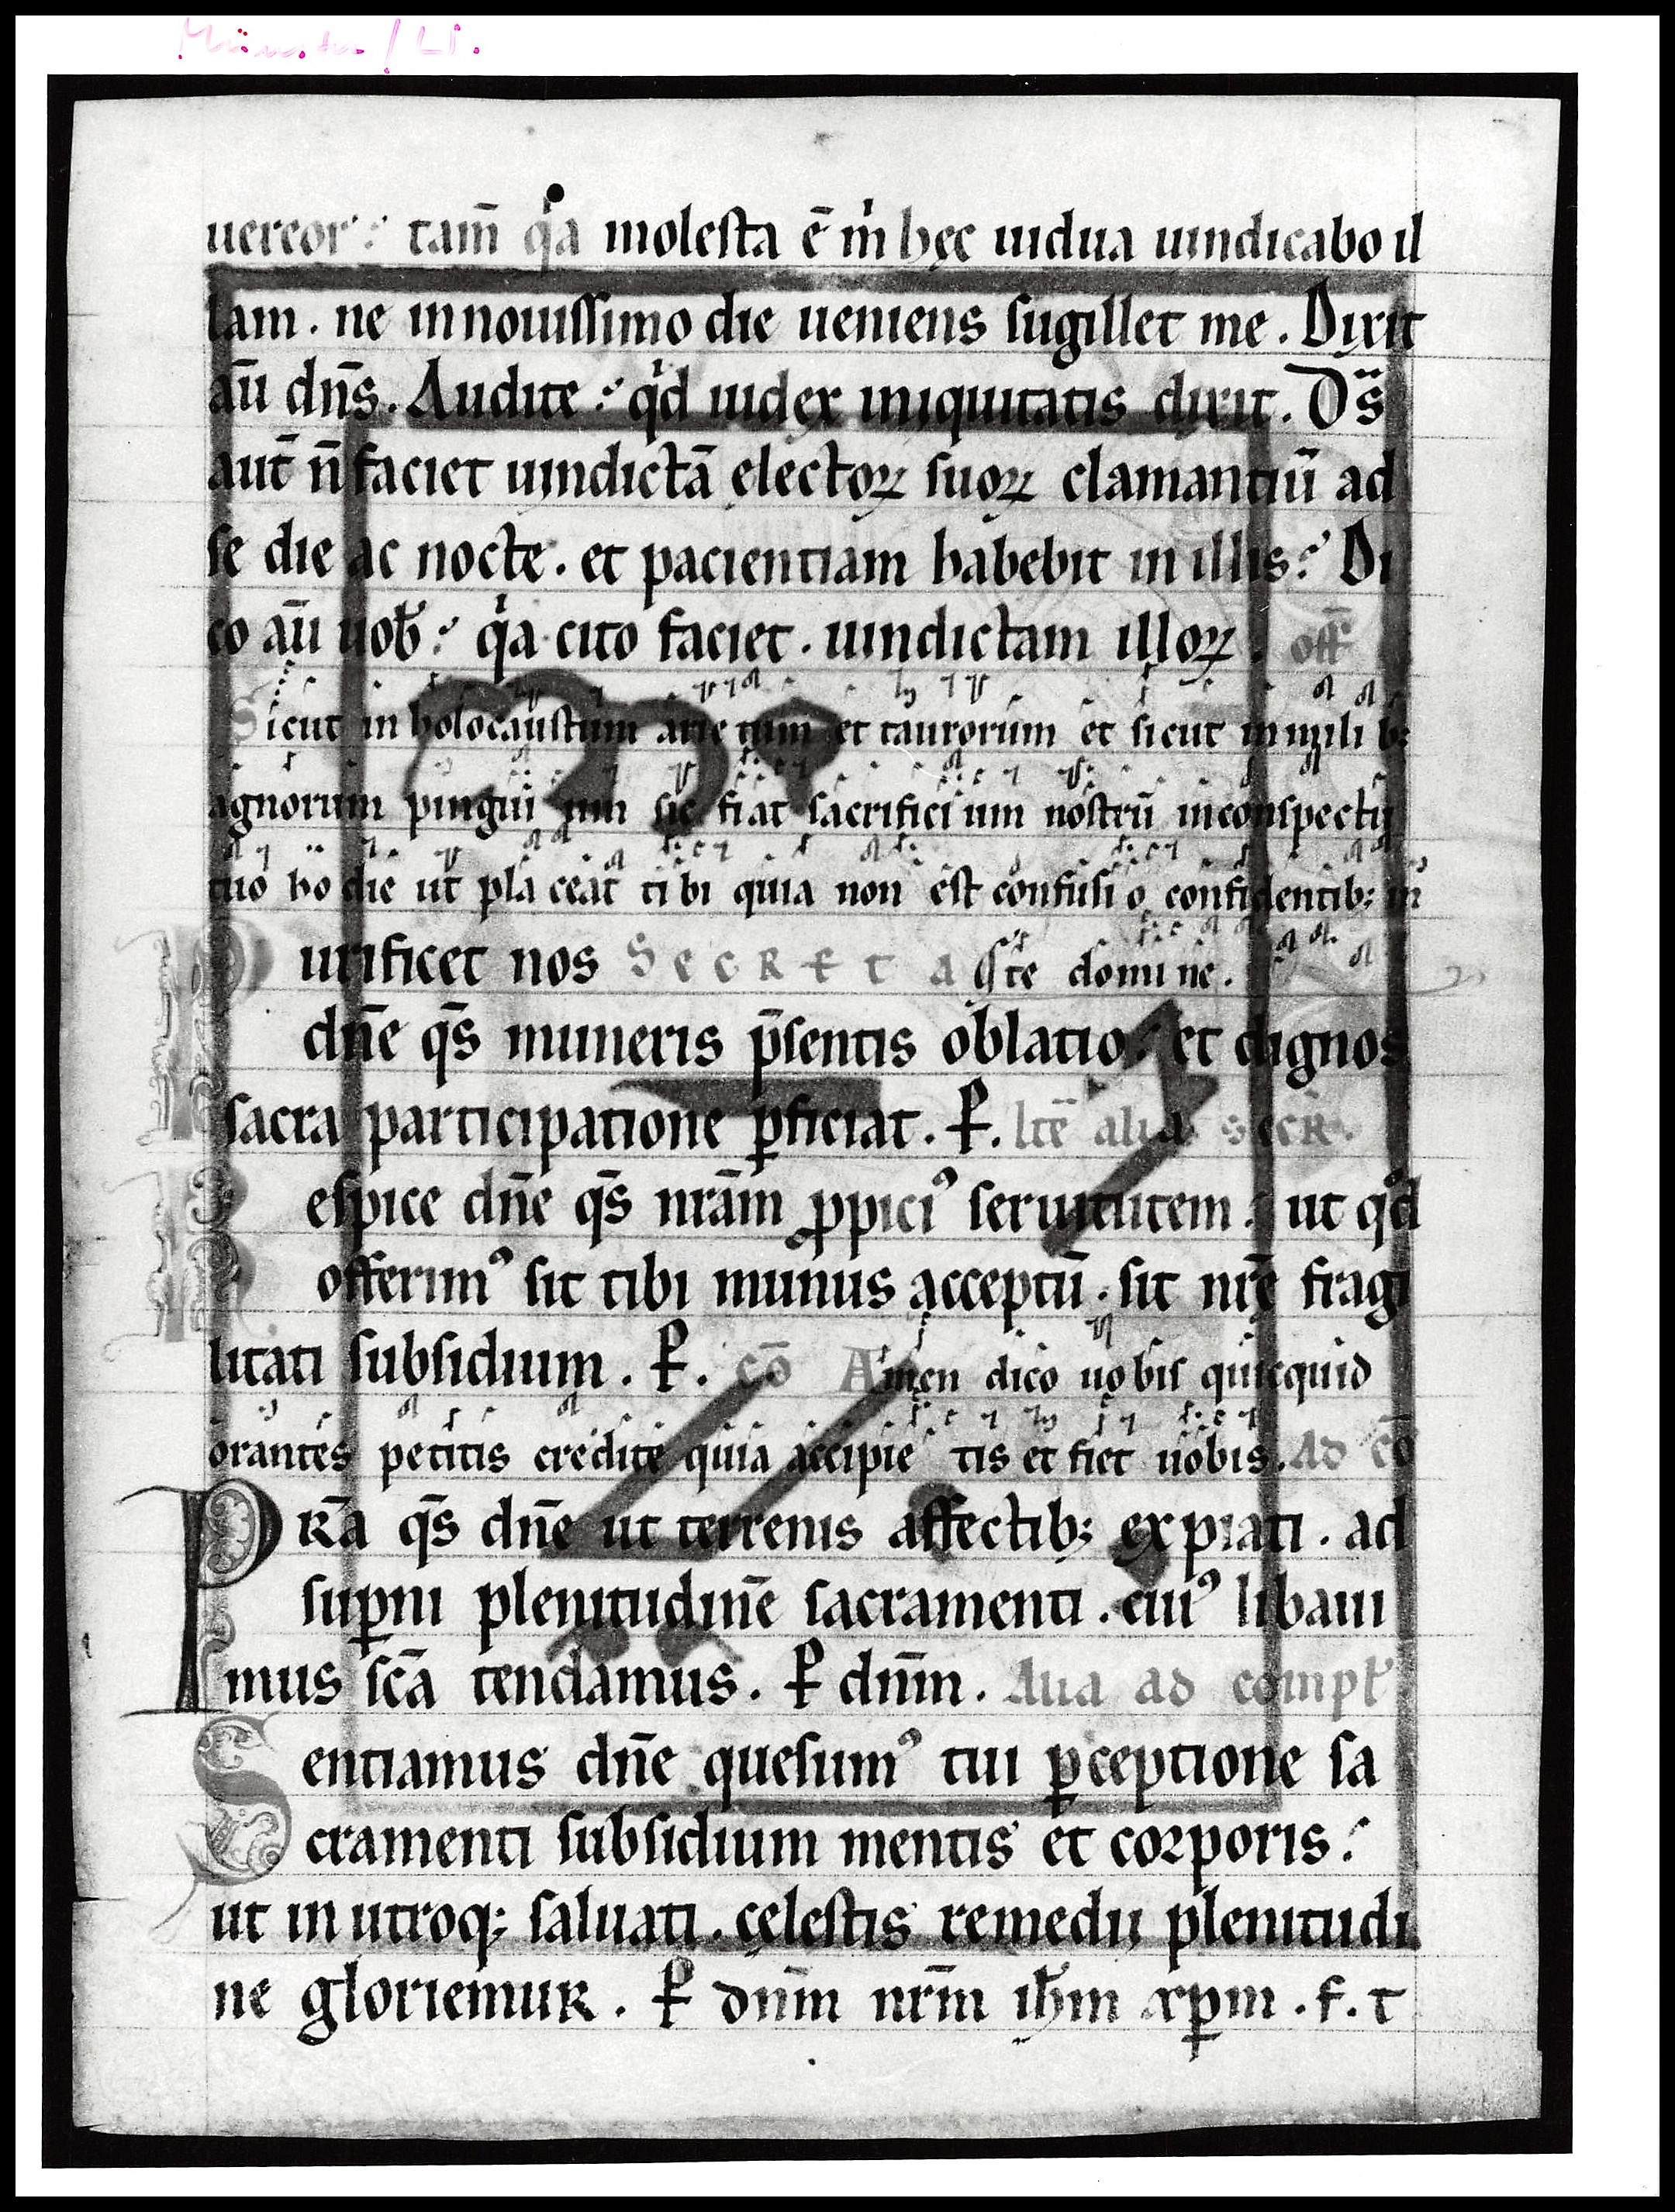 Münster / W.
uereor: tam̄ qͥa molesta ē m̄ hęc uidua uindicabo il
lam. ne in nouissimo die ueniens sugillet me. Dixit
aū dn̄s. Audite: qͥd iudex iniquitatis dixit. Ds̄
aut̄ n̄ faciet uindictā electoꝝ suoꝝ clamantiū ad
se die ac nocte. et pacientiam habebit in illis? Di
co aū uob̄: qͥa cito faciet. uindictam illoꝝ. off̄
Sicut in holocaustum arietum et taurorum et sicut in milib;
agnorum pinguium sic fiat sacrificium nostrū in conspectu
tuo hodie ut placeat tibi quia non est confusio confidentib; in
Purificet nos Secreta te domine.
dn̄e qs̄ muneris p̄sentis oblatio: et dignos
sacra participatione ꝑficiat. P. Itē alia secr̄.
Respice dn̄e qs̄ nrām ꝓpiciꝰ seruitutem: ut qd
offerimꝰ sit tibi munus acceptū. sit nrē fragi
litati subsidium. P. cō Amen dico uobis quicquid
orantes petitis credite quia accipietis et fiet uobis. Ad cō
PRā qs̄ dn̄e ut terrenis affectib; expiati. ad
suꝑni plenitudinē sacramenti. cuiꝰ libaui
mus scā tendamus. P dn̄m. Alia ad compl̄
Sentiamus dn̄e quesumꝰ tui ꝑceptione sa
cramenti subsidium mentis et corporis:
ut in utroq; saluati. cęlestis remedii plenitudi
ne gloriemur. P dn̄m nr̄m ih̄m xp̄m. f. t